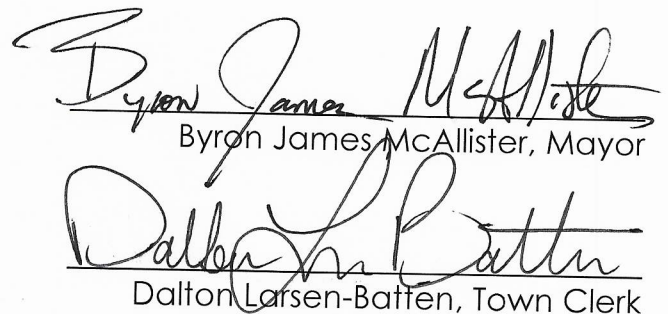 Byron James McAllister
Byron James McAllister, Mayor
Dalton L Batten
Dalton Larsen-Batten, Town Clerk